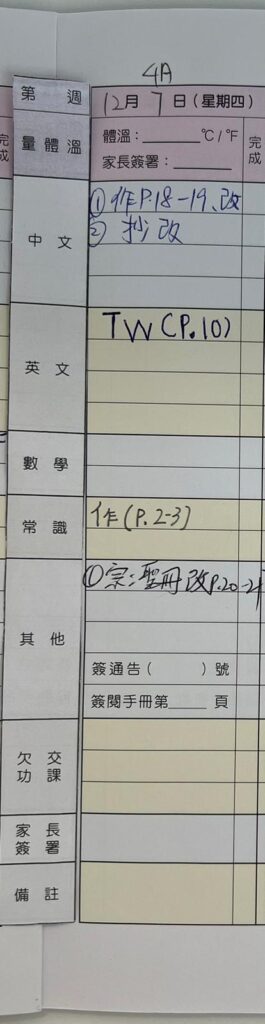 4A
第 週
12月 7 日 (星期四)
完成
量體溫
體溫：______℃/℉
家長簽署：______
完成
中文
① 作P.18-19、改
② 抄改
英文
TW(P.10)
數學
常識
作(P.2-3)
其他
① 宗：聖冊改P.20-21
簽通告( )號
簽閱手冊第____頁
欠交功課
家長簽署
備註